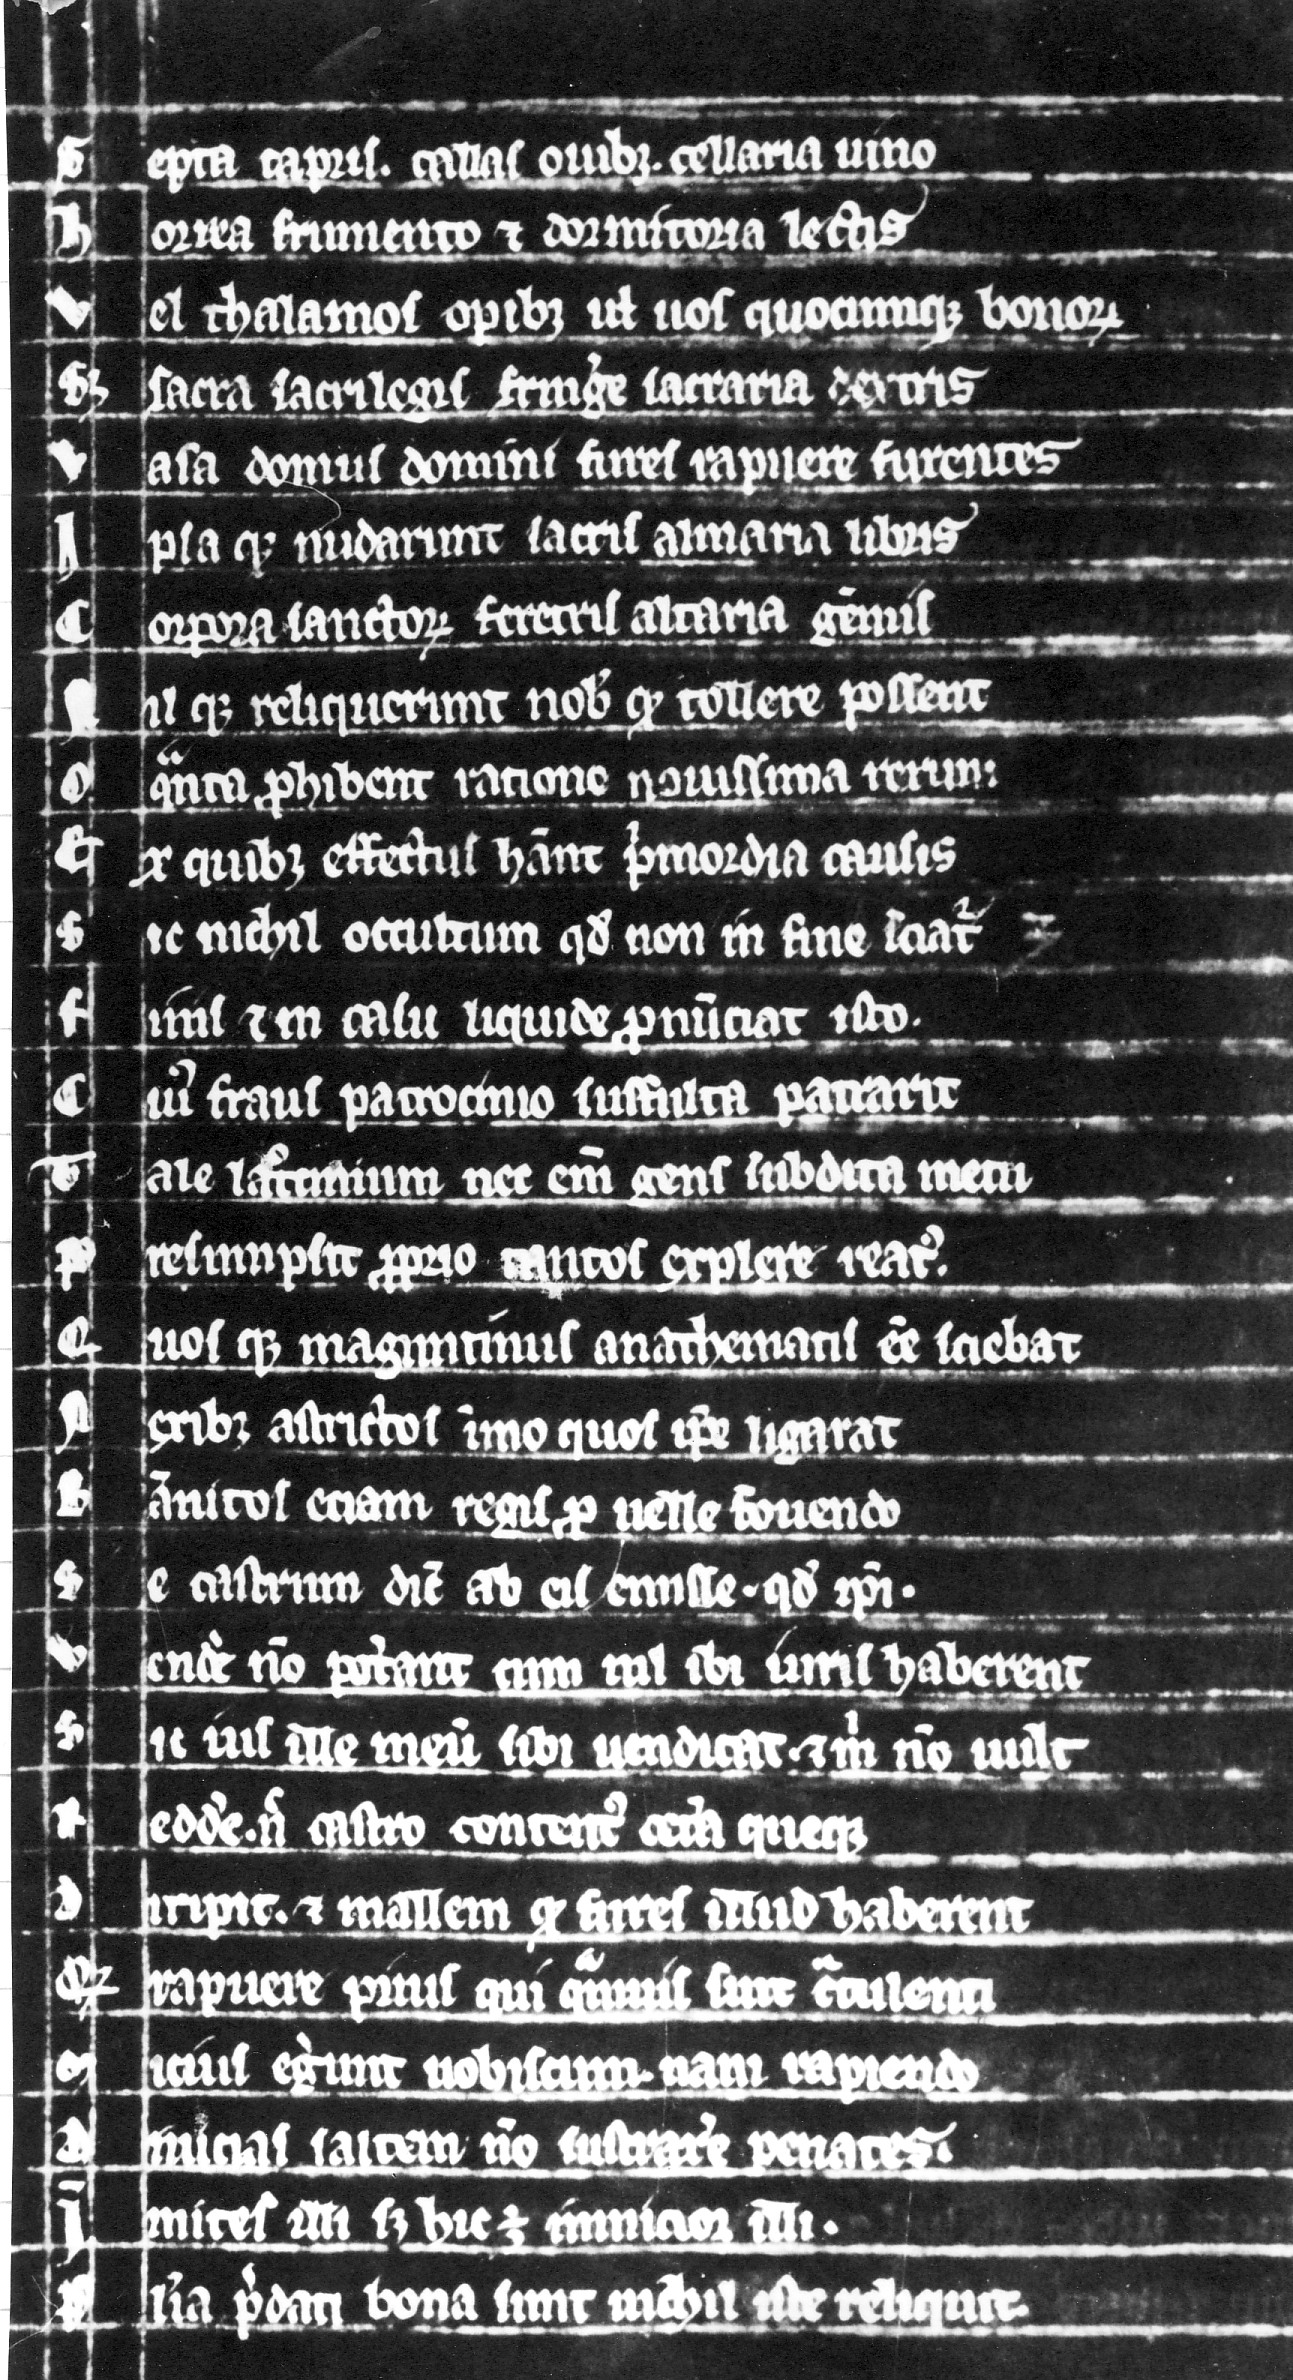 S epta capris. caulas ouibꝫ. cellaria uino
h orrea frumento ⁊ dormitoria lectis
V el thalamos opibꝫ ul̵ uos quocumqꝫ bonoꝝ
Sꝫ sacra sacrilegis fring̾e sacraria dextris
V asa domus domini fures rapuere furentes
I psa qꝫ nudarunt sacris armaria libris
C orpora sanctoꝝ feretris altaria ge̅mis
N il qꝫ reliquerunt nob̾ qꝫ tollere possent
O qͣnta ꝓhibent ratione nouissima rerum
E x quibꝫ effectus ha̅nt pͥmordia causis
S ic nichil occultum qd̾ non in fine sciat᷑
f inis ⁊ in casu liquide ꝓnu̅ciat isto.
C uiꝰ fraus patrocinio suffulta patrarit
T ale latrocinium nec em̅ gens subdita metu
P resumpsit ꝓprio tantos explere reatꝰ.
Q uos qꝫ maguntinus anathematis ee̅ sciebat
N exibꝫ astrictos i̅mo quos ip̅e ligarat
B a̅nitos eciam regis ꝓ uelle fouendo
S e castrum dic̅ ab eis emisse. qd̾ ip̅i.
V end̾e no̅ pot̾ant cum nil ibi iuris haberent
S ic ius ille meu̅ sibi uendicat. ⁊ mͥ no̅ uult
R edd̾e. n̅ castro contentꝰ cet̾a queqꝫ
D iripit. ⁊ mallem qꝫ fures illud haberent
Qͥ rapuere prius qui qͣmuis sint tͣculenti
M icius eg̾unt nobiscum. nam rapiendo
A micias saltem no̅ lustrare̾ penates.
I̅ mites illi sꝫ hic ē inmicior illis.
P lͥa pͥdati bona sunt nichil iste reliquit.